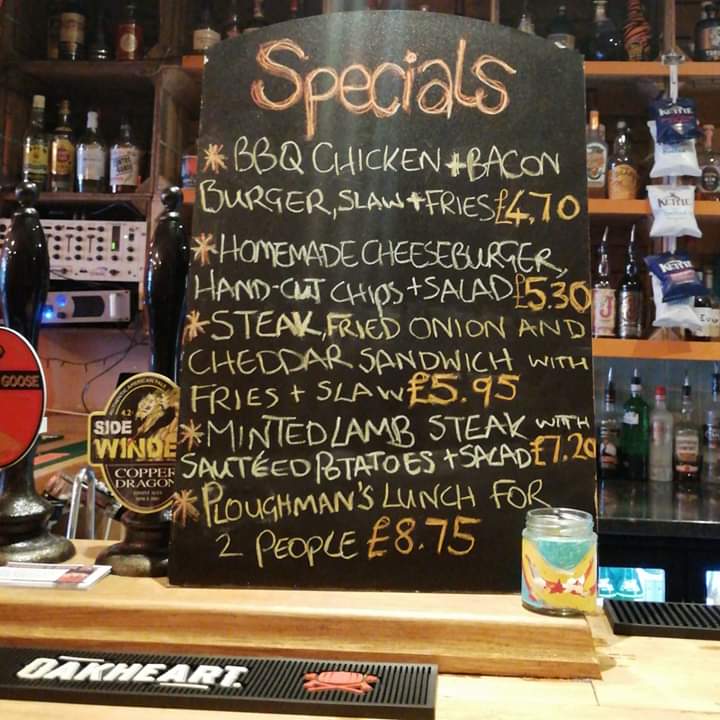 Specials
* BBQ CHICKEN + BACON
BURGER, SLAW + FRIES £4,70
* HOMEMADE CHEESEBURGER,
HAND-CUT CHIPS + SALAD £5.30
* STEAK, FRIED ONION AND
CHEDDAR SANDWICH WITH
FRIES + SLAW £5.95
* MINTED LAMB STEAK WITH
SAUTÉED POTATOES + SALAD £7.20
* PLOUGHMAN'S LUNCH FOR
2 PEOPLE £8.75
GOOSE
4.2%
SIDE
WINDE
COPPER
DRAGON
KETTLE
KETTLE
OAKHEART